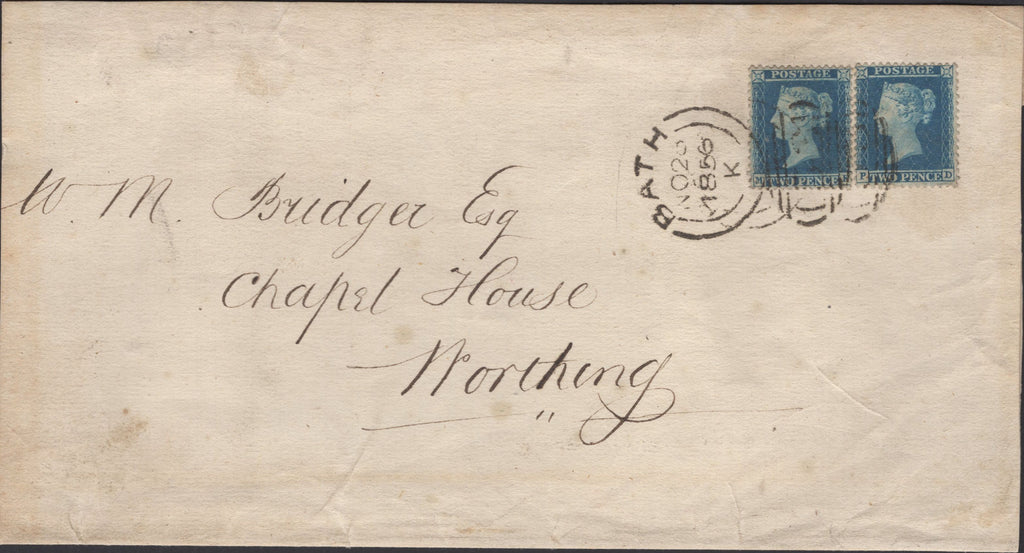 POSTAGE POSTAGE
TWO PENCE P TWO PENCE D
BATH
1856
K
W. M. Bridger Esq
Chapel House
Worthing